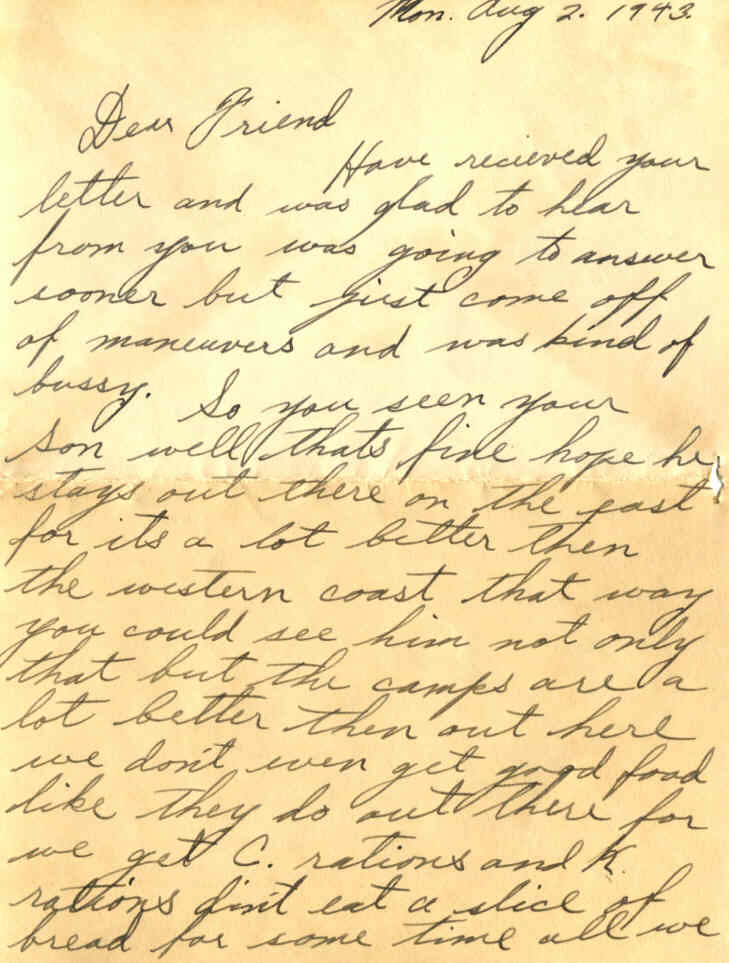 Mon. Aug 2. 1943.
Dear Friend
Have recieved your
letter and was glad to hear
from you was going to answer
sooner but just come off
of maneuvers and was kind of
bussy. So you seen your
son well thats fine hope he
stays out there on the east
for its a lot better then
the western coast that way
you could see him not only
that but the camps are a
lot better then out here
we don't even get good food
like they do out there for
we get C. rations and K.
rations din't eat a slice of
bread for some time all we